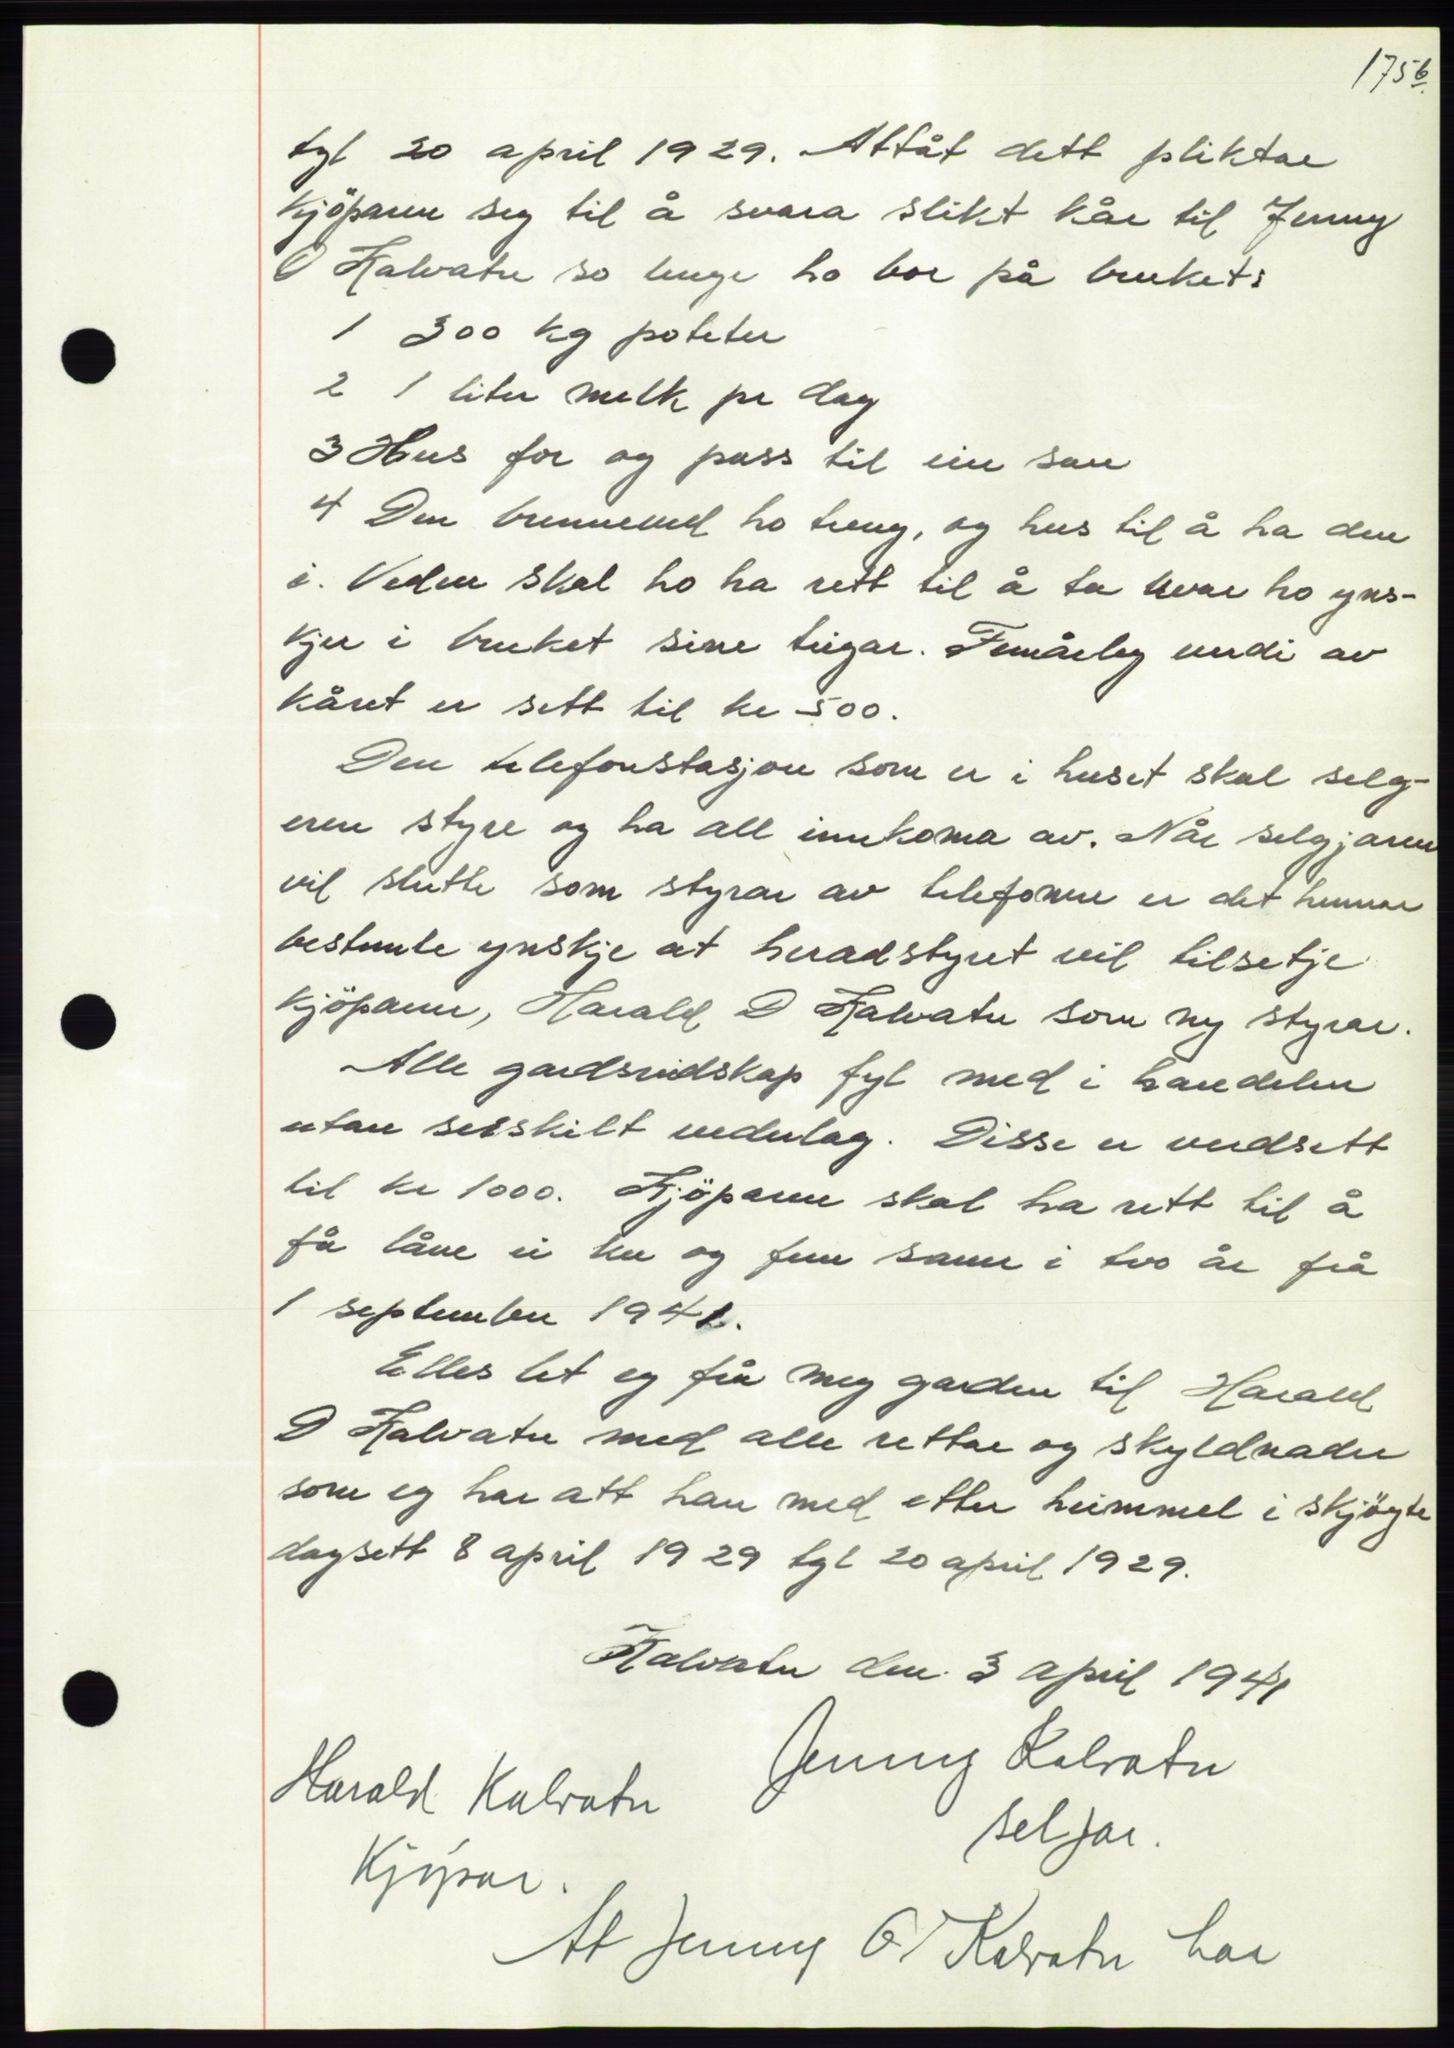 175b.
tgl 20 april 1929. Attåt dett pliktar
kjöparen seg til å svara slikt kår til Jenny
O Kalvatn so lenge ho bor på bruket:
1 300 kg poteter
2 1 liter melk pr dag
3 Hus for og pass til ein sau
4 Den brenneved ho treng, og hus til å ha den
i. Veden skal ho ha rett til å ta kvar ho yns-
kjer i bruket sine teigar. Femårleg verdi av
kåret er sett til kr 500.
Den telefonstasjon som er i huset skal selg-
eren styre og ha all innkoma av. Når selgjaren
vil slutte som styrar av telefonen er det hennar
bestemte ynskje at heradstyret vil tilsetje
kjöparen, Harald D Kalvatn som ny styrar.
Alle gardsreidskap fyl med i handelen
utan serskilt vederlag. Disse er verdsett
til kr 1000. Kjöparen skal ha rett til å
få låne ei ku og fem sauer i two år frå
1 september 1941.
Elles let eg frå meg garden til Harald
D Kalvatn med alle rettar og skyldnader
som eg har att han med etter heimmel i skjöyte
dagsett 8 april 1929 tgl 20 april 1929.
Kalvatn den 3 april 1941
Jenny Kalvatn
seljar.
Harald Kalvatn
Kjöpar.
At Jenny O Kalvatn har